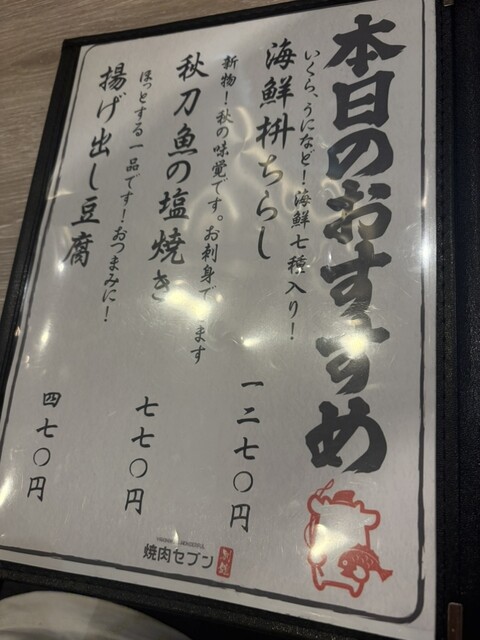 本日のおすすめ
いくら、うになど!海鮮七種入り!
海鮮枡ちらし
一二七〇円
新物!秋の味覚です。お刺身で ます
秋刀魚の塩焼き
七七〇円
ほっとする一品です!おつまみに!
揚げ出し豆腐
四七〇円
焼肉セブン